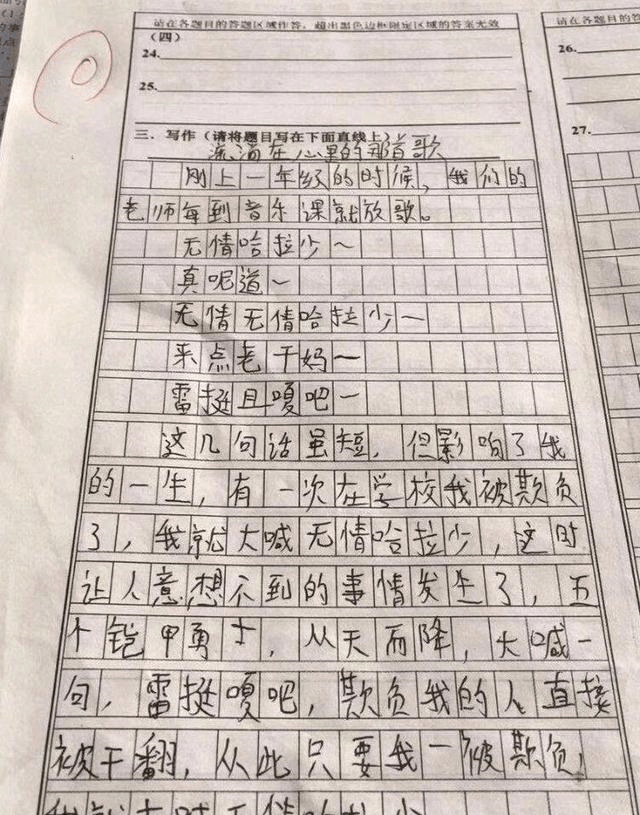 请在各题目的答题区域作答，超出黑色边框限定区域的答案无效
(四)
24.
25.
三、写作（请将题目写在下面直线上）
流淌在心里的那首歌
刚上一年级的时候，我们的
老师每到音乐课就放歌。
无情哈拉少～
真呢道～
无情无情哈拉少～
来点老干妈～
雷挺且嘎吧～
这几句话虽短，但影响了我
的一生，有一次在学校我被欺负
了，我就大喊无情哈拉少，这时
让人意想不到的事情发生了，五
个铠甲勇士，从天而降，大喊一
句，雷挺嘎吧，欺负我的人直接
被干翻，从此只要我一被欺负，
我就大喊无情哈拉少
请在各题目的答
26.
27.